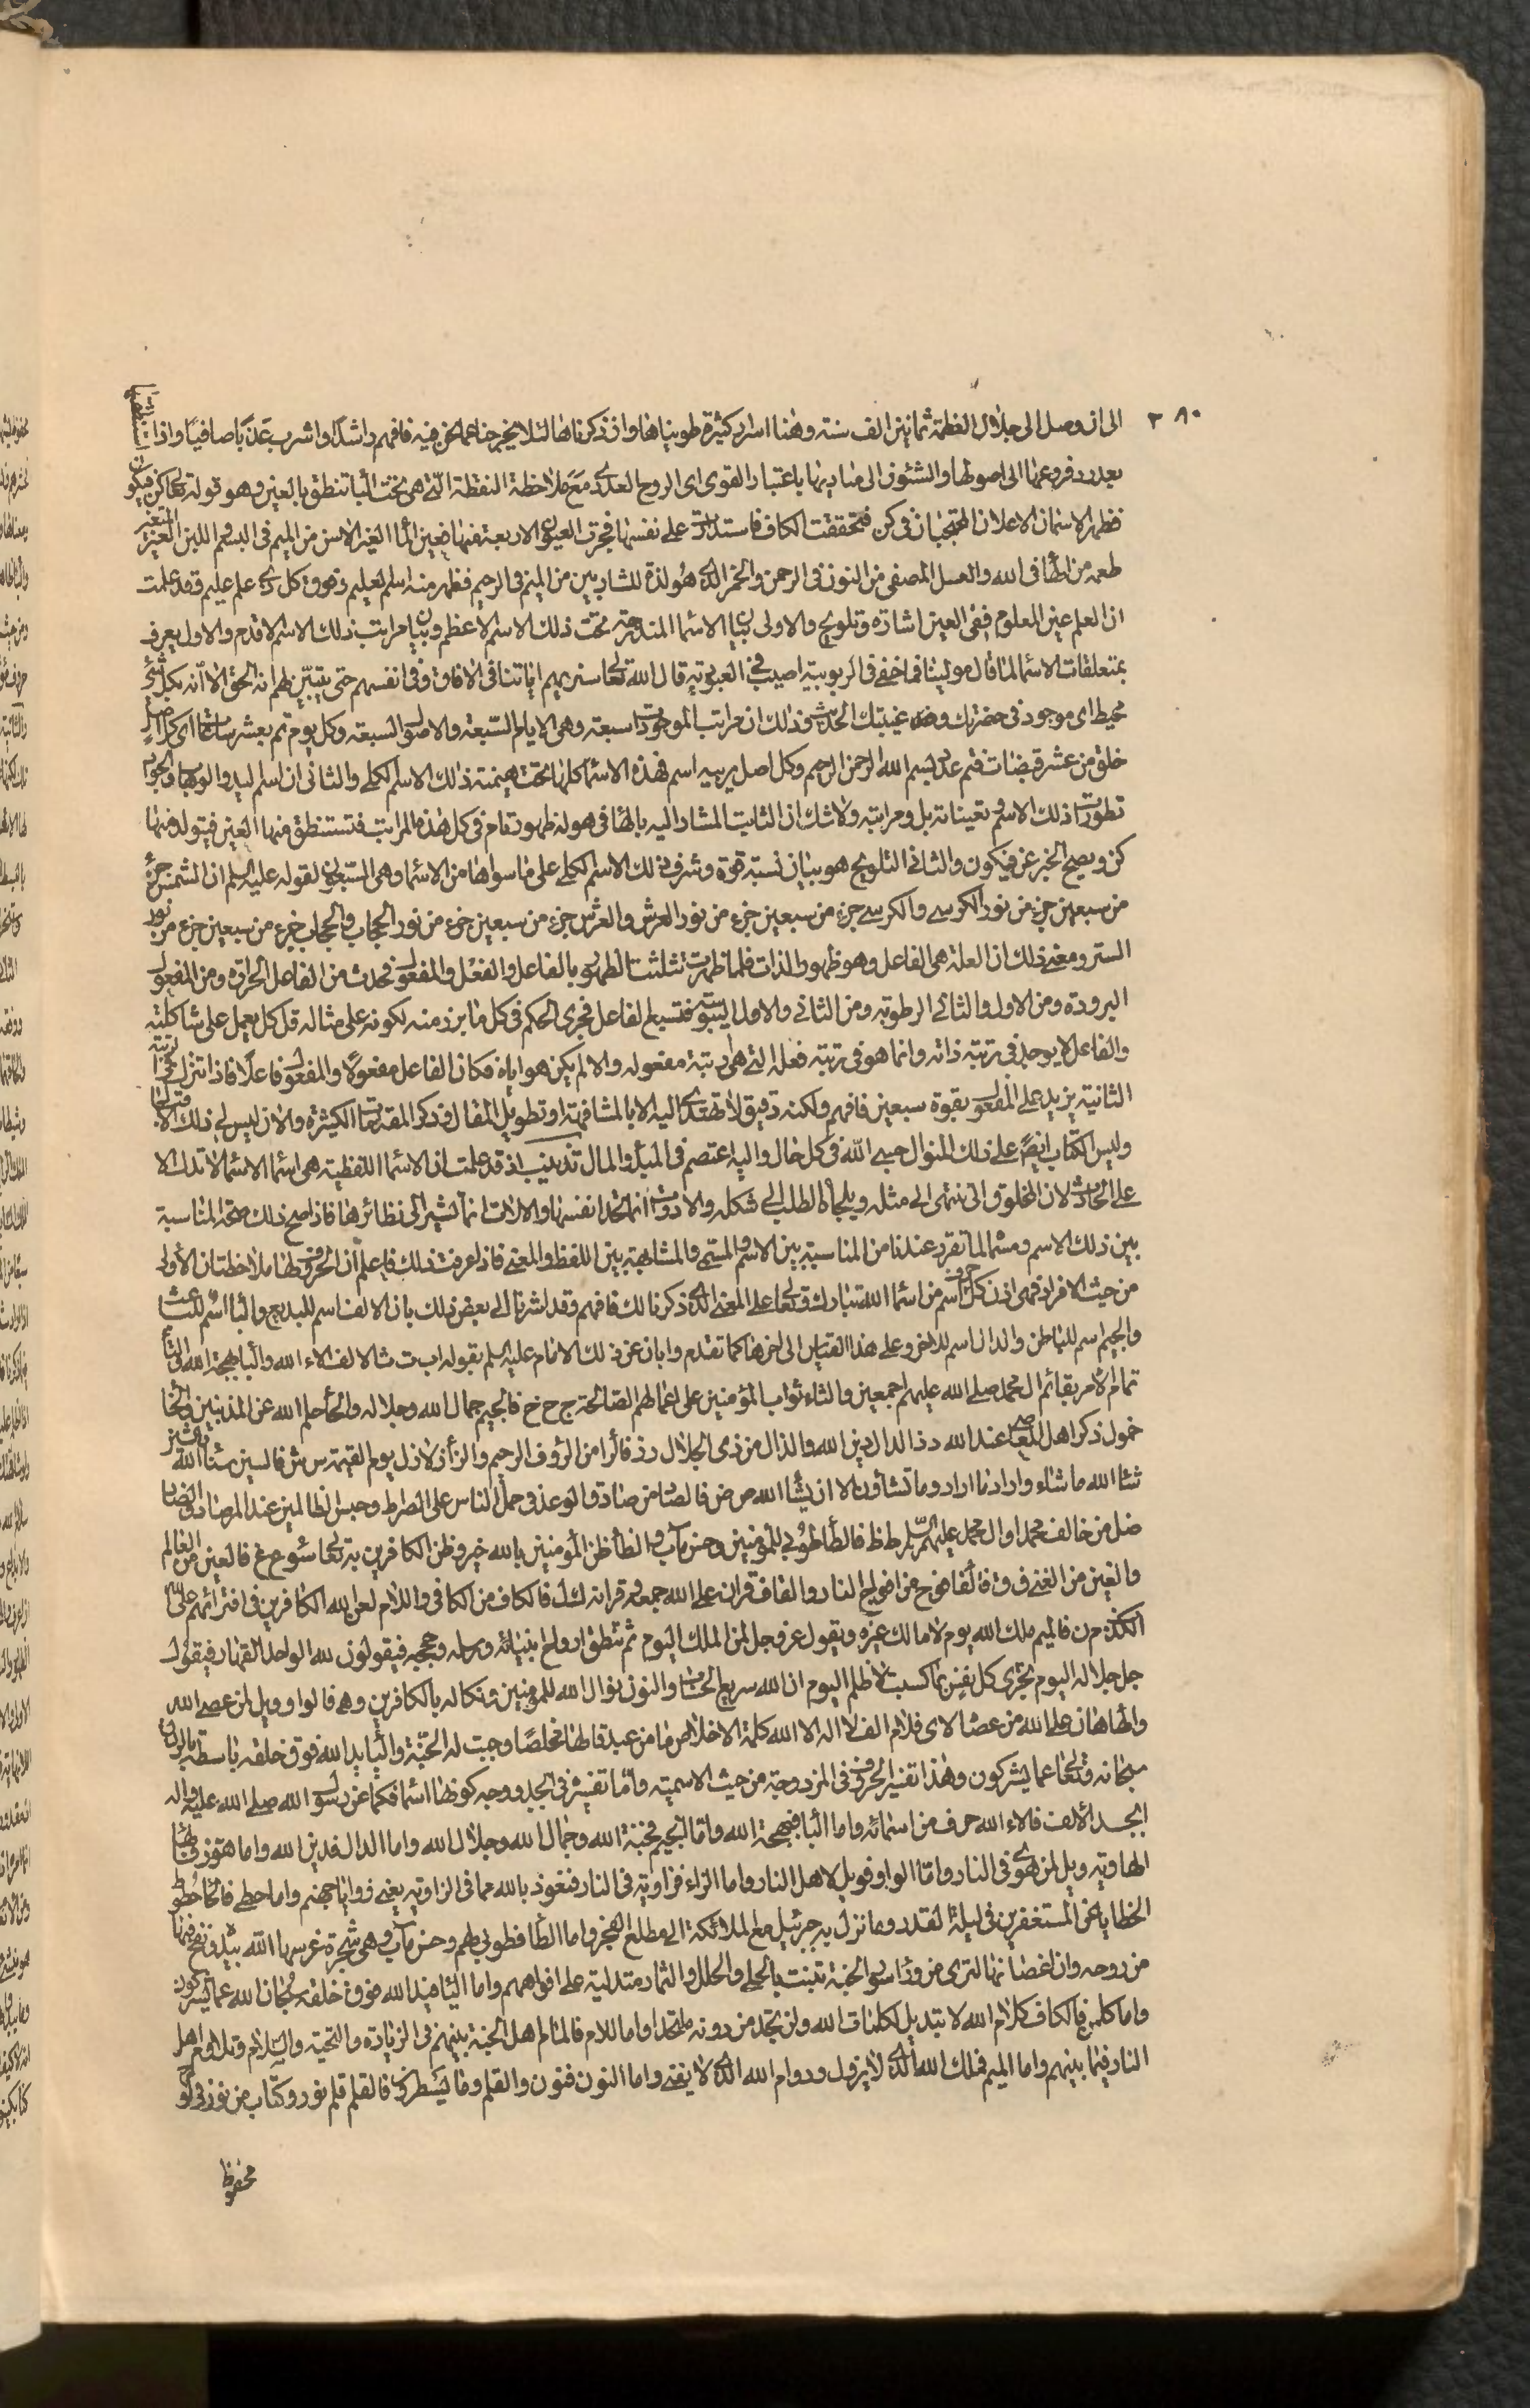 ٢٨٠
الى ان وصل الى جلال العظمة ثمانين الف سنة وهٰهنا اسرار كثيرة طويناها وان ذكرناها لئلا يخرجنا عما نحن فيه فافهم راشدًا واشرب عذبًا صافيًا واذا
بعدد فروعها الى اصولها والشئون الى مناديها باعتبار القوى اى الروح العددى مع ملاحظة النقطة التى هى تحت الباء تنطق بالعين وهو قوله تعالى كن فيكون
فظهر الاسمان الاعلان المحتجبان فى كن فتحققت الكاف فاستدارت على نفسها فجرت العيون الاربعة فمنها ضعين الماء الغير الاسن من الميم فى البسم اللبن الغير المتغير
طعمه من الهاء فى الله والعسل المصفى من النون فى الرحمن والخمر الذى هو لذة للشاربين من الميم فى الرحيم فظهر منه اسم العليم وفوق كل ذى علم عليم وقد علمت
ان العلم عين المعلوم ففى العين اشارة وتلويح والاولى بيان الاسماء المندرجة تحت ذلك الاسم الاعظم وبيان مراتب ذلك الاسم الاقدم والاول يعرف
بمتعلقات الاسماء لما قال مولينا فما خفى فى الربوبية اصيب فى العبودية قال الله تعالى سنريهم اياتنا فى الافاق وفى انفسهم حتى يتبين لهم انه الحق الا انه بكل شئ
محيط اى موجود فى حضرتك و غيبتك الحديث ذلك ان مراتب الموجودات سبعة وهى الايام السبعة والاصول السبعة وكل يوم تم بعشر ساعات اى كل اصل
خلق من عشر قبضات فتم عدد بسم الله الرحمن الرحيم وكل اصل يربيه اسم فهذه الاسماء كلها تحت هيمنة ذلك الاسم الكلى والثانى ان اسم
تطورات ذلك الاسم وتعيناته بل ومراتبه ولا شك ان الثابت المشار اليه بالهاء فى هو له ظهور تام فى كل هذه المراتب فتستنطق منها العين فيتولد منها
كن ويصح الخبر عن فيكون والثانى التلويح هو بيان نسبة قوة وشرف ذلك الاسم الكلى على ما سواها من الاسماء وهى السبعون لقوله عليه السلم ان الشمس جزء
من سبعين جزء من نور الكرسى والكرسى جزء من سبعين جزء من نور العرش والعرش جزء من سبعين جزء من نور الحجاب والحجاب جزء من سبعين جزء من نور
الستر ومعنى ذلك ان العلة هى الفاعل وهو ظهور الذات فلما ظهرت تثلثت الظهور بالفاعل والفعل والمفعول فحدث من الفاعل الحرارة ومن المفعول
البرودة ومن الاول والثانى الرطوبة ومن الثانى والاول اليبوسة فتسبع الفاعل فجرى الحكم فى كل ما برز منه لكونه على مثاله قل كل يعمل على شاكلته
والفاعل لا يوجد فى رتبة ذاته وانما هو فى رتبة فعله التى هى رتبة مفعوله والا لم يكن هو اياه فكان الفاعل مفعولًا والمفعول فاعلًا فاذا تنزل الى الرتبة
الثانية يزيد على المفعول بقوة سبعين فافهم ولكنه دقيق لا تهتدى اليه الا بالمشافهة او تطويل المقال وذكر المقدمات الكثيرة والان ليس لى ذلك الاقبال
وليس الكتاب ايضًا على ذلك المنوال حسبى الله فى كل حال واليه اعتصم فى المبدأ والمال تذنيب اذ قد علمت ان الاسماء اللفظية هى اسماء الاسماء لا تدل الا
على الحادث لان المخلوق انتهى الى مثله ويلجأه الطلب الى شكله والادوات انما تحد انفسها والالات انما تشير الى نظائرها فاذا صح ذلك صحة المناسبة
بين ذلك الاسم ومسماه لما تقرر عندنا من المناسبة بين الاسم والمسمى والمشابهة بين اللفظ والمعنى فاذا عرفت ذلك فاعلم ان الحروف لها ملاحظتان الاولى
من حيث الافراد فهى اذن كل حرف اسم من اسماء الله تبارك وتعالى على المعنى الذى ذكرنا لك فافهم وقد اشرنا الى بعض ذلك بان الالف اسم للبديع والباء اسم للباعث
والجيم اسم للباطن والدال اسم للاخر وعلى هذا القياس الى اخرها كما تقدم وابان عن ذلك الامام عليه السلم بقوله ا ب ت ث الالف الاء الله والباء بهجة الله والتاء
تمام الامر بقائم ال محمد صلى الله عليهم اجمعين والثاء ثواب المؤمنين على اعمالهم الصالحة ج ح خ فالجيم جمال الله وجلاله والحاء حلم الله عن المذنبين والخاء
خمول ذكر اهل المعاصى عند الله د ذ الدال دين الله والذال من ذى الجلال ر ز فالراء من الرؤف الرحيم والزاء زلازل يوم القيمة س ش فالسين سناء الله والشين
شاء الله ما شاء واراد ما اراد وما تشاؤن الا ان يشاء الله ص ض فالصاد من صادق الوعد فى حمل الناس على الصراط وحبس الظالمين عند المرصاد والضاد
ضل من خالف محمدا وال محمد عليهم السلم ط ظ فالطاء طوبى للمؤمنين وحسن مآب والظاء ظن المؤمنين بالله خير وظن الكافرين به تعالى سوء ع غ فالعين من العالم
والغين من الغنى ف ق فالفاء فوج من افواج النار والقاف قران على الله جمعه وقرانه ك ل فالكاف من الكافى واللام لعن الله الكافرين فى افترائهم على الله
الكذب م ن فالميم ملك الله يوم لا مالك غيره ويقول عز وجل لمن الملك اليوم ثم تنطق ارواح انبيائه ورسله وحججه فيقولون لله الواحد القهار فيقول
جل جلاله اليوم تجزى كل نفس بما كسبت لا ظلم اليوم ان الله سريع الحساب والنون نوال الله للمؤمنين ونكاله بالكافرين و ه فالواو ويل لمن عصى الله
والهاء هان على الله من عصاه لا ى فلام الف لا اله الا الله كلمة الاخلاص ما من عبد قالها مخلصًا وجبت له الجنة والياء يد الله فوق خلقه باسطة بالرزق
سبحانه وتعالى عما يشركون وهذا تفسير الحروف فى المزدوجة من حيث الاسمية واما تفسيره فى ابجد ووجه كونها اسماء فكما عن رسول الله صلى الله عليه واله
ابجد الالف فالاء الله حرف من اسمائه واما الباء فبهجة الله واما الجيم فجنة الله وجمال الله وجلال الله واما الدال فدين الله واما هوز فالهاء
الهاوية ويل لمن هوى فى النار واما الواو فويل لاهل النار واما الزاء فزاوية فى النار فنعوذ بالله مما فى الزاوية يعنى زوايا جهنم واما حطى فالحاء حطوط
الخطايا عن المستغفرين فى ليلة القدر وما نزل به جبرئيل مع الملائكة الى مطلع الفجر واما الطاء فطوبى لهم وحسن مآب وهى شجرة غرسها الله بيده ونفخ فيها
من روحه وان اغصانها لترى من وراء سور الجنة تنبت بالحلى والحلل والثمار متدلية على افواههم واما الياء فيد الله فوق خلقه سبحان الله عما يشركون
واما كلمن فالكاف كلام الله لا تبديل لكلمات الله ولن تجد من دونه ملتحدا واما اللام فالمام اهل الجنة بينهم فى الزيارة والتحية والسلام وتلاوم اهل
النار فيما بينهم واما الميم فملك الله الذى لا يزول ودوام الله الذى لا يفنى واما النون فنون والقلم وما يسطرون فالقلم قلم نور وكتاب من نور فى لوح
محفوظ